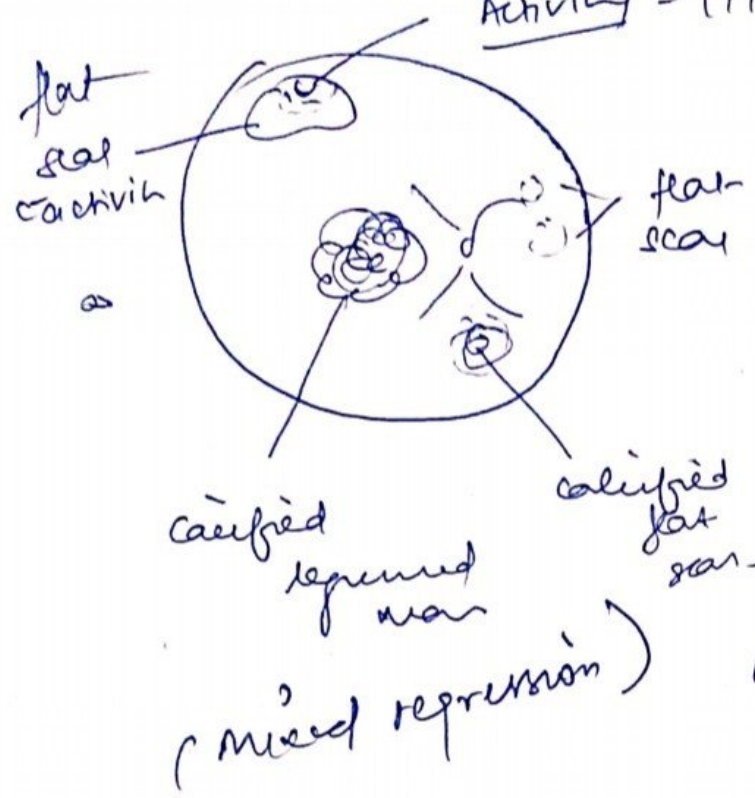 Activity - (
flat
scar
c̄ activity
flat
scar
calcified
regressed
mass
calcified
flat
scar
(mixed regression)